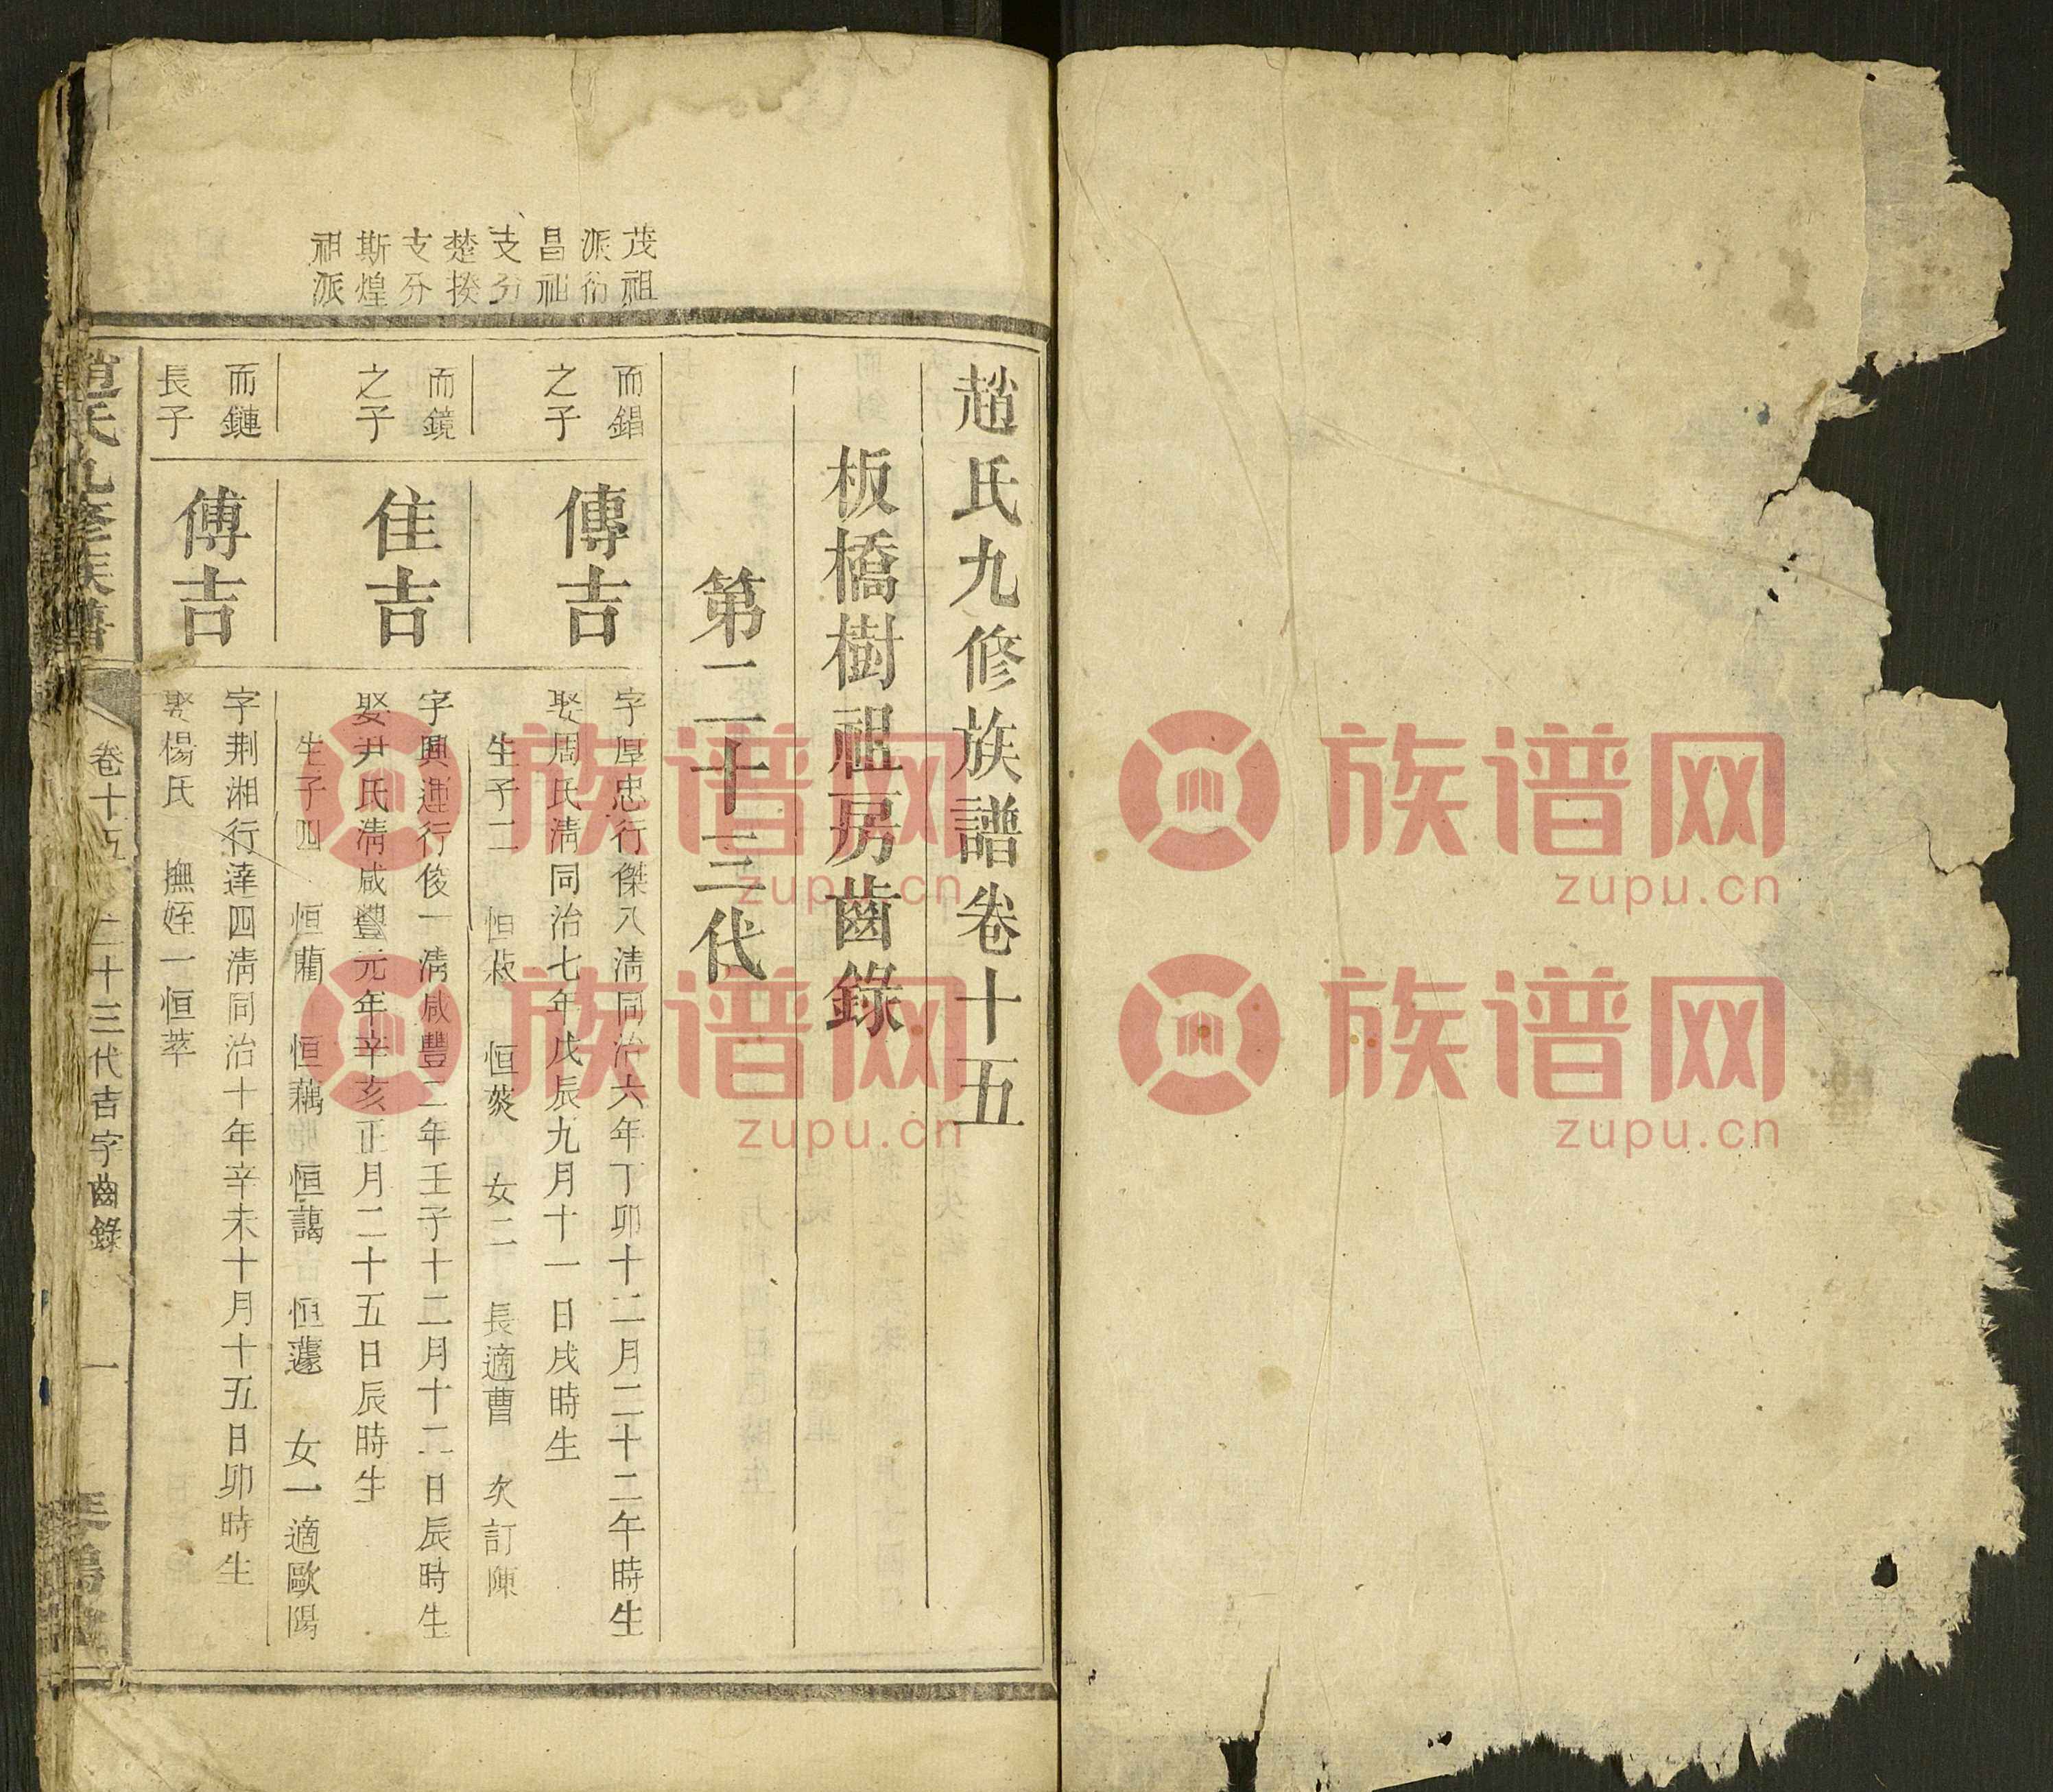 茂祖
派衍
昌祉
支分
楚揆
支分
斯煌
祖派
趙氏九修族譜卷十五
板橋樹祖房齒錄
第二十三代
而錩
之子
傳吉
字厚忠行傑八清同治六年丁卯十二月二十二午時生
娶周氏清同治七年戊辰九月十一日戌時生
生子二 恒 恒 女二 長適曹 次訂陳
而鏡
之子
佳吉
字興運行俊一清咸豐二年壬子十二月十二日辰時生
娶尹氏清咸豐元年辛亥正月二十五日辰時生
生子四 恒蘭 恒藕 恒藹 恒蘧 女一適歐陽
而鏈
長子
傅吉
字荆湘行達四清同治十年辛未十月十五日卯時生
娶楊氏 撫姪一恒萃
趙氏九修族譜
卷十五 二十三代吉字齒錄
一
族谱网
zupu.cn
族谱网
zupu.cn
族谱网
zupu.cn
族谱网
zupu.cn